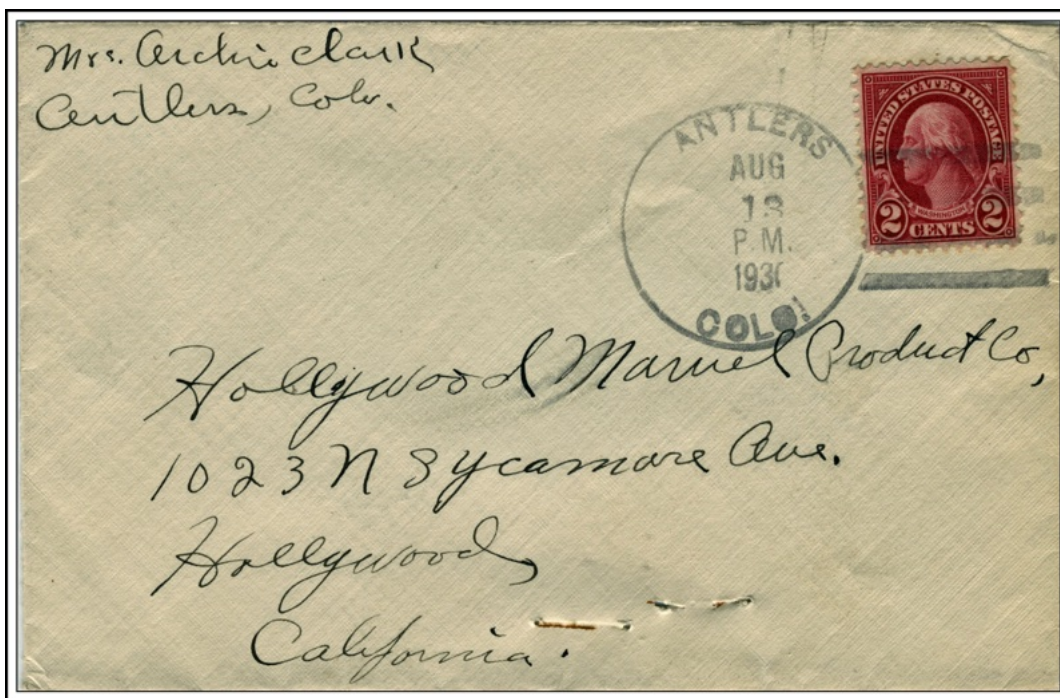 Mrs. Archie Clark
Antlers, Colo.
ANTLERS
AUG
13
P.M.
1930
COLO.
UNITED STATES POSTAGE
WASHINGTON
2 CENTS 2
Hollywood Marvel Product Co,
1023 N Sycamore Ave.
Hollywood,
California.